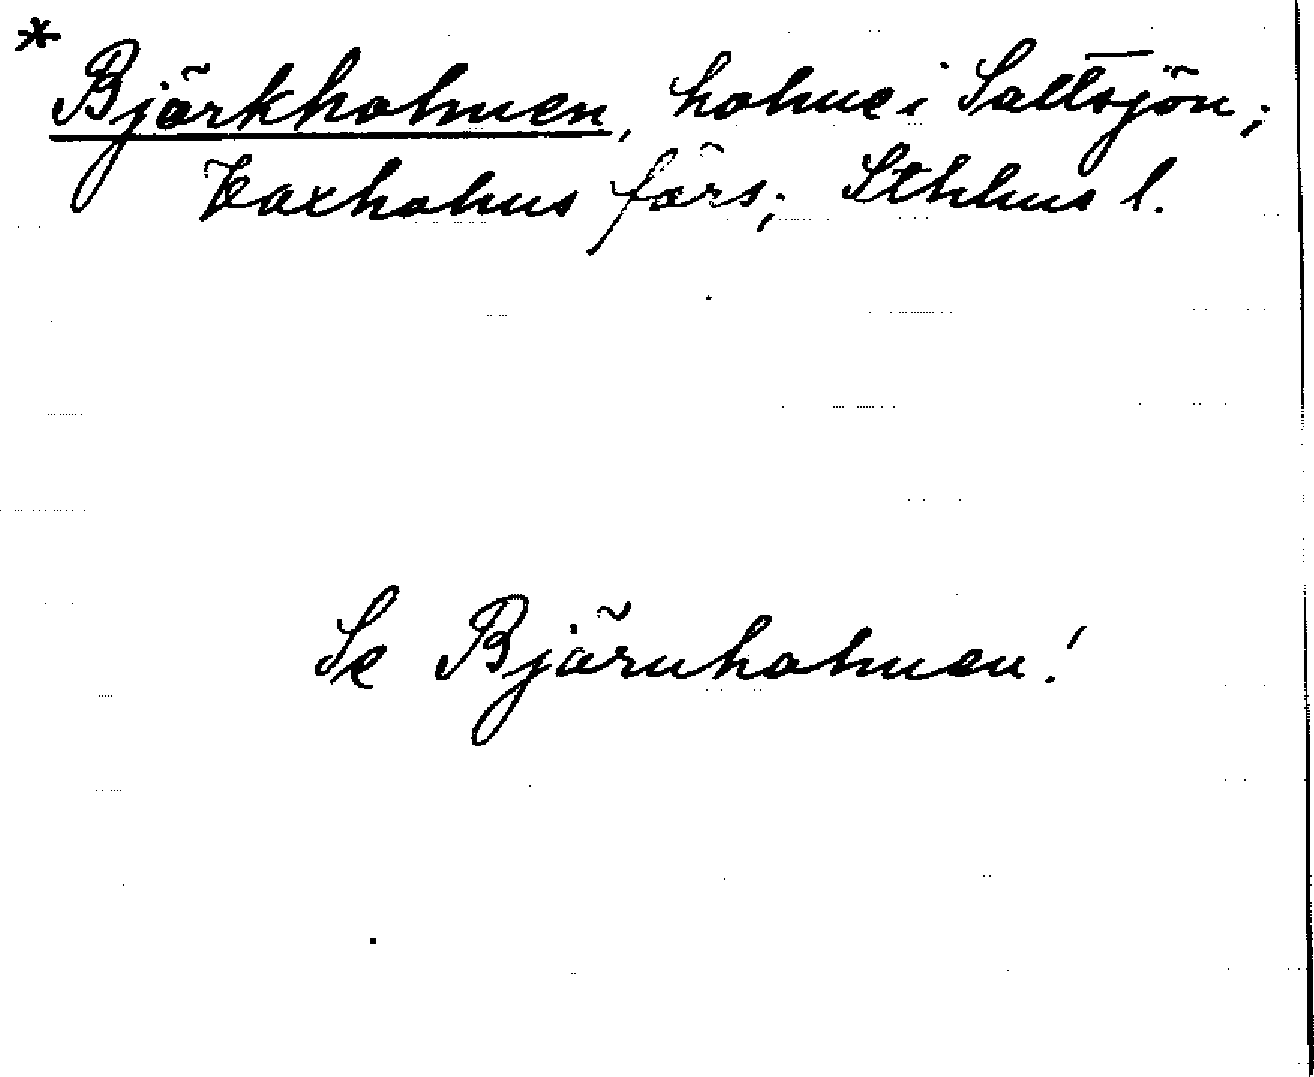 * Björkholmen, holme i Saltsjön;
Vaxholms förs; Sthlms l.
Se Björnholmen!